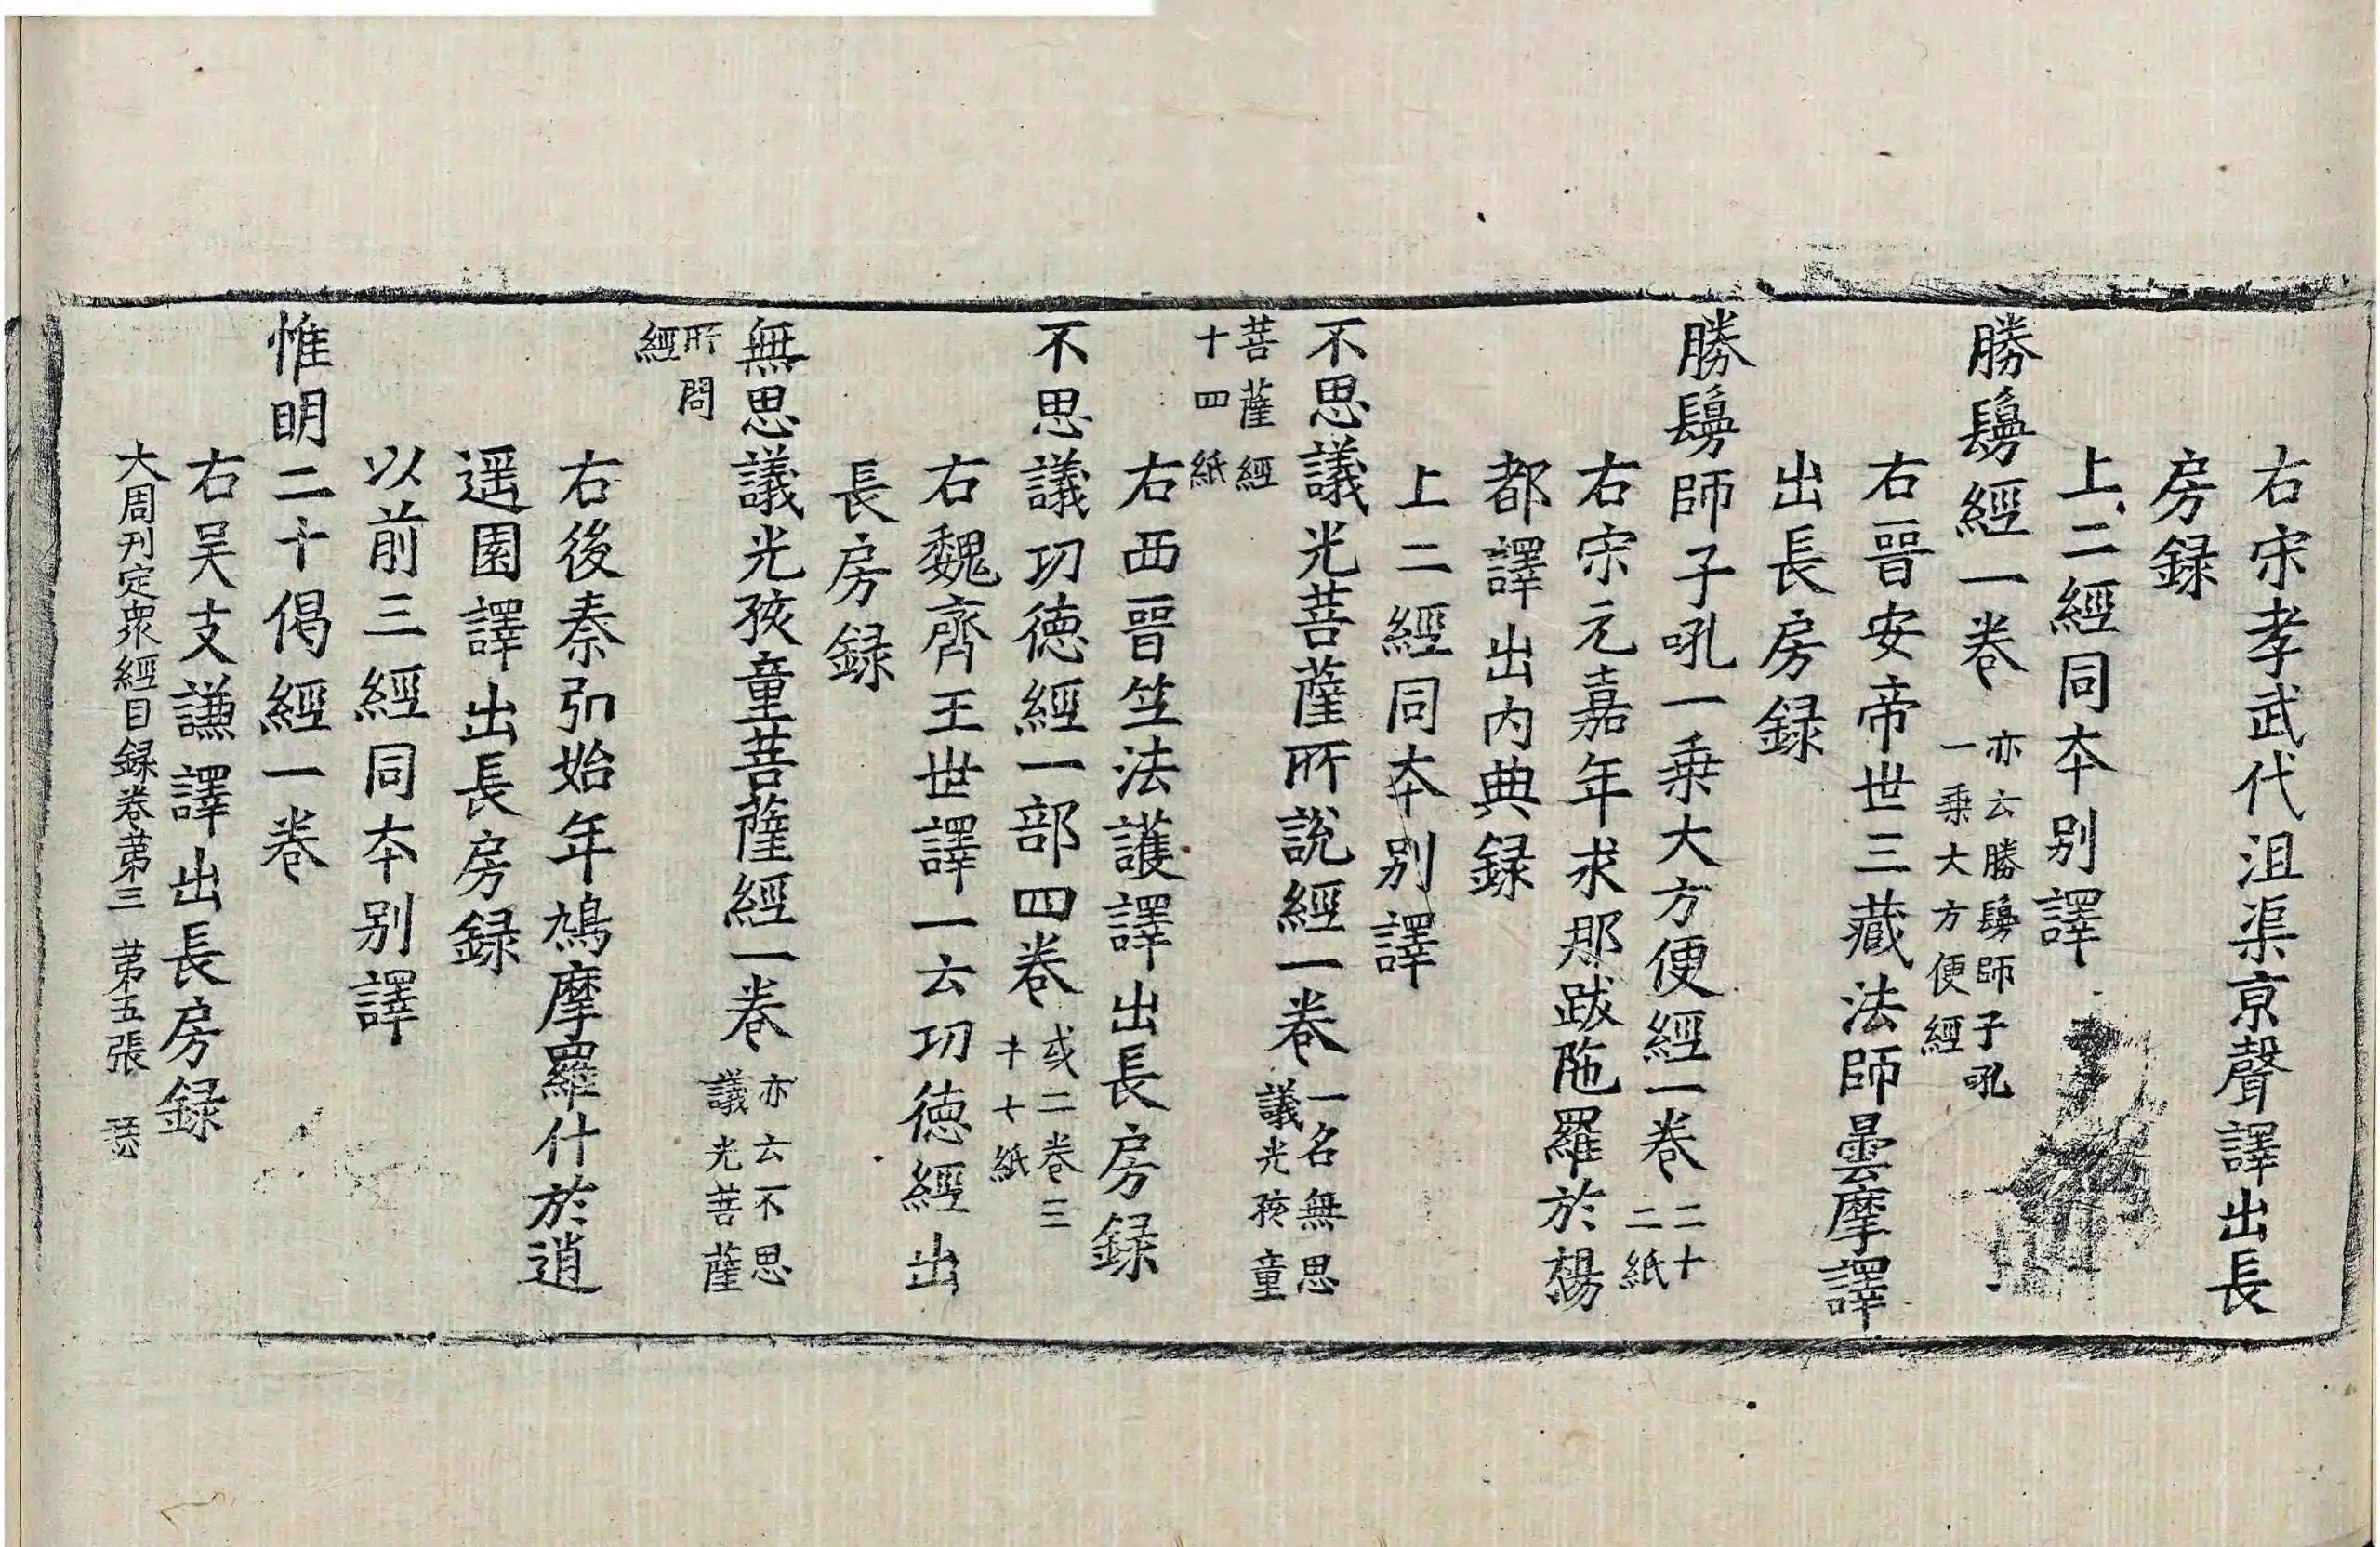 右宋孝武代沮渠京聲譯出長
房録
上二經同本别譯
勝鬘經一卷 亦云勝鬘師子吼
一乗大方便經
右晉安帝世三藏法師曇摩譯
出長房録
勝鬘師子吼一乗大方便經一卷 二十
二紙
右宋元嘉年求那跋陁羅於楊
都譯出内典録
上二經同本别譯
不思議光菩薩所說經一卷 一名無思
議光孩童
菩薩經
十四紙
右西晉竺法護譯出長房録
不思議功德經一部四卷 或二卷三
十七紙
右魏齊王世譯一云功徳經出
長房録
無思議光孩童菩薩經一卷 亦云不思
議光菩薩
所問
經
右後秦弘始年鳩摩羅什於逍
遥園譯出長房録
以前三經同本别譯
惟明二十偈經一卷
右吴支謙譯出長房録
大周刊定衆經目録卷苐三 苐五張